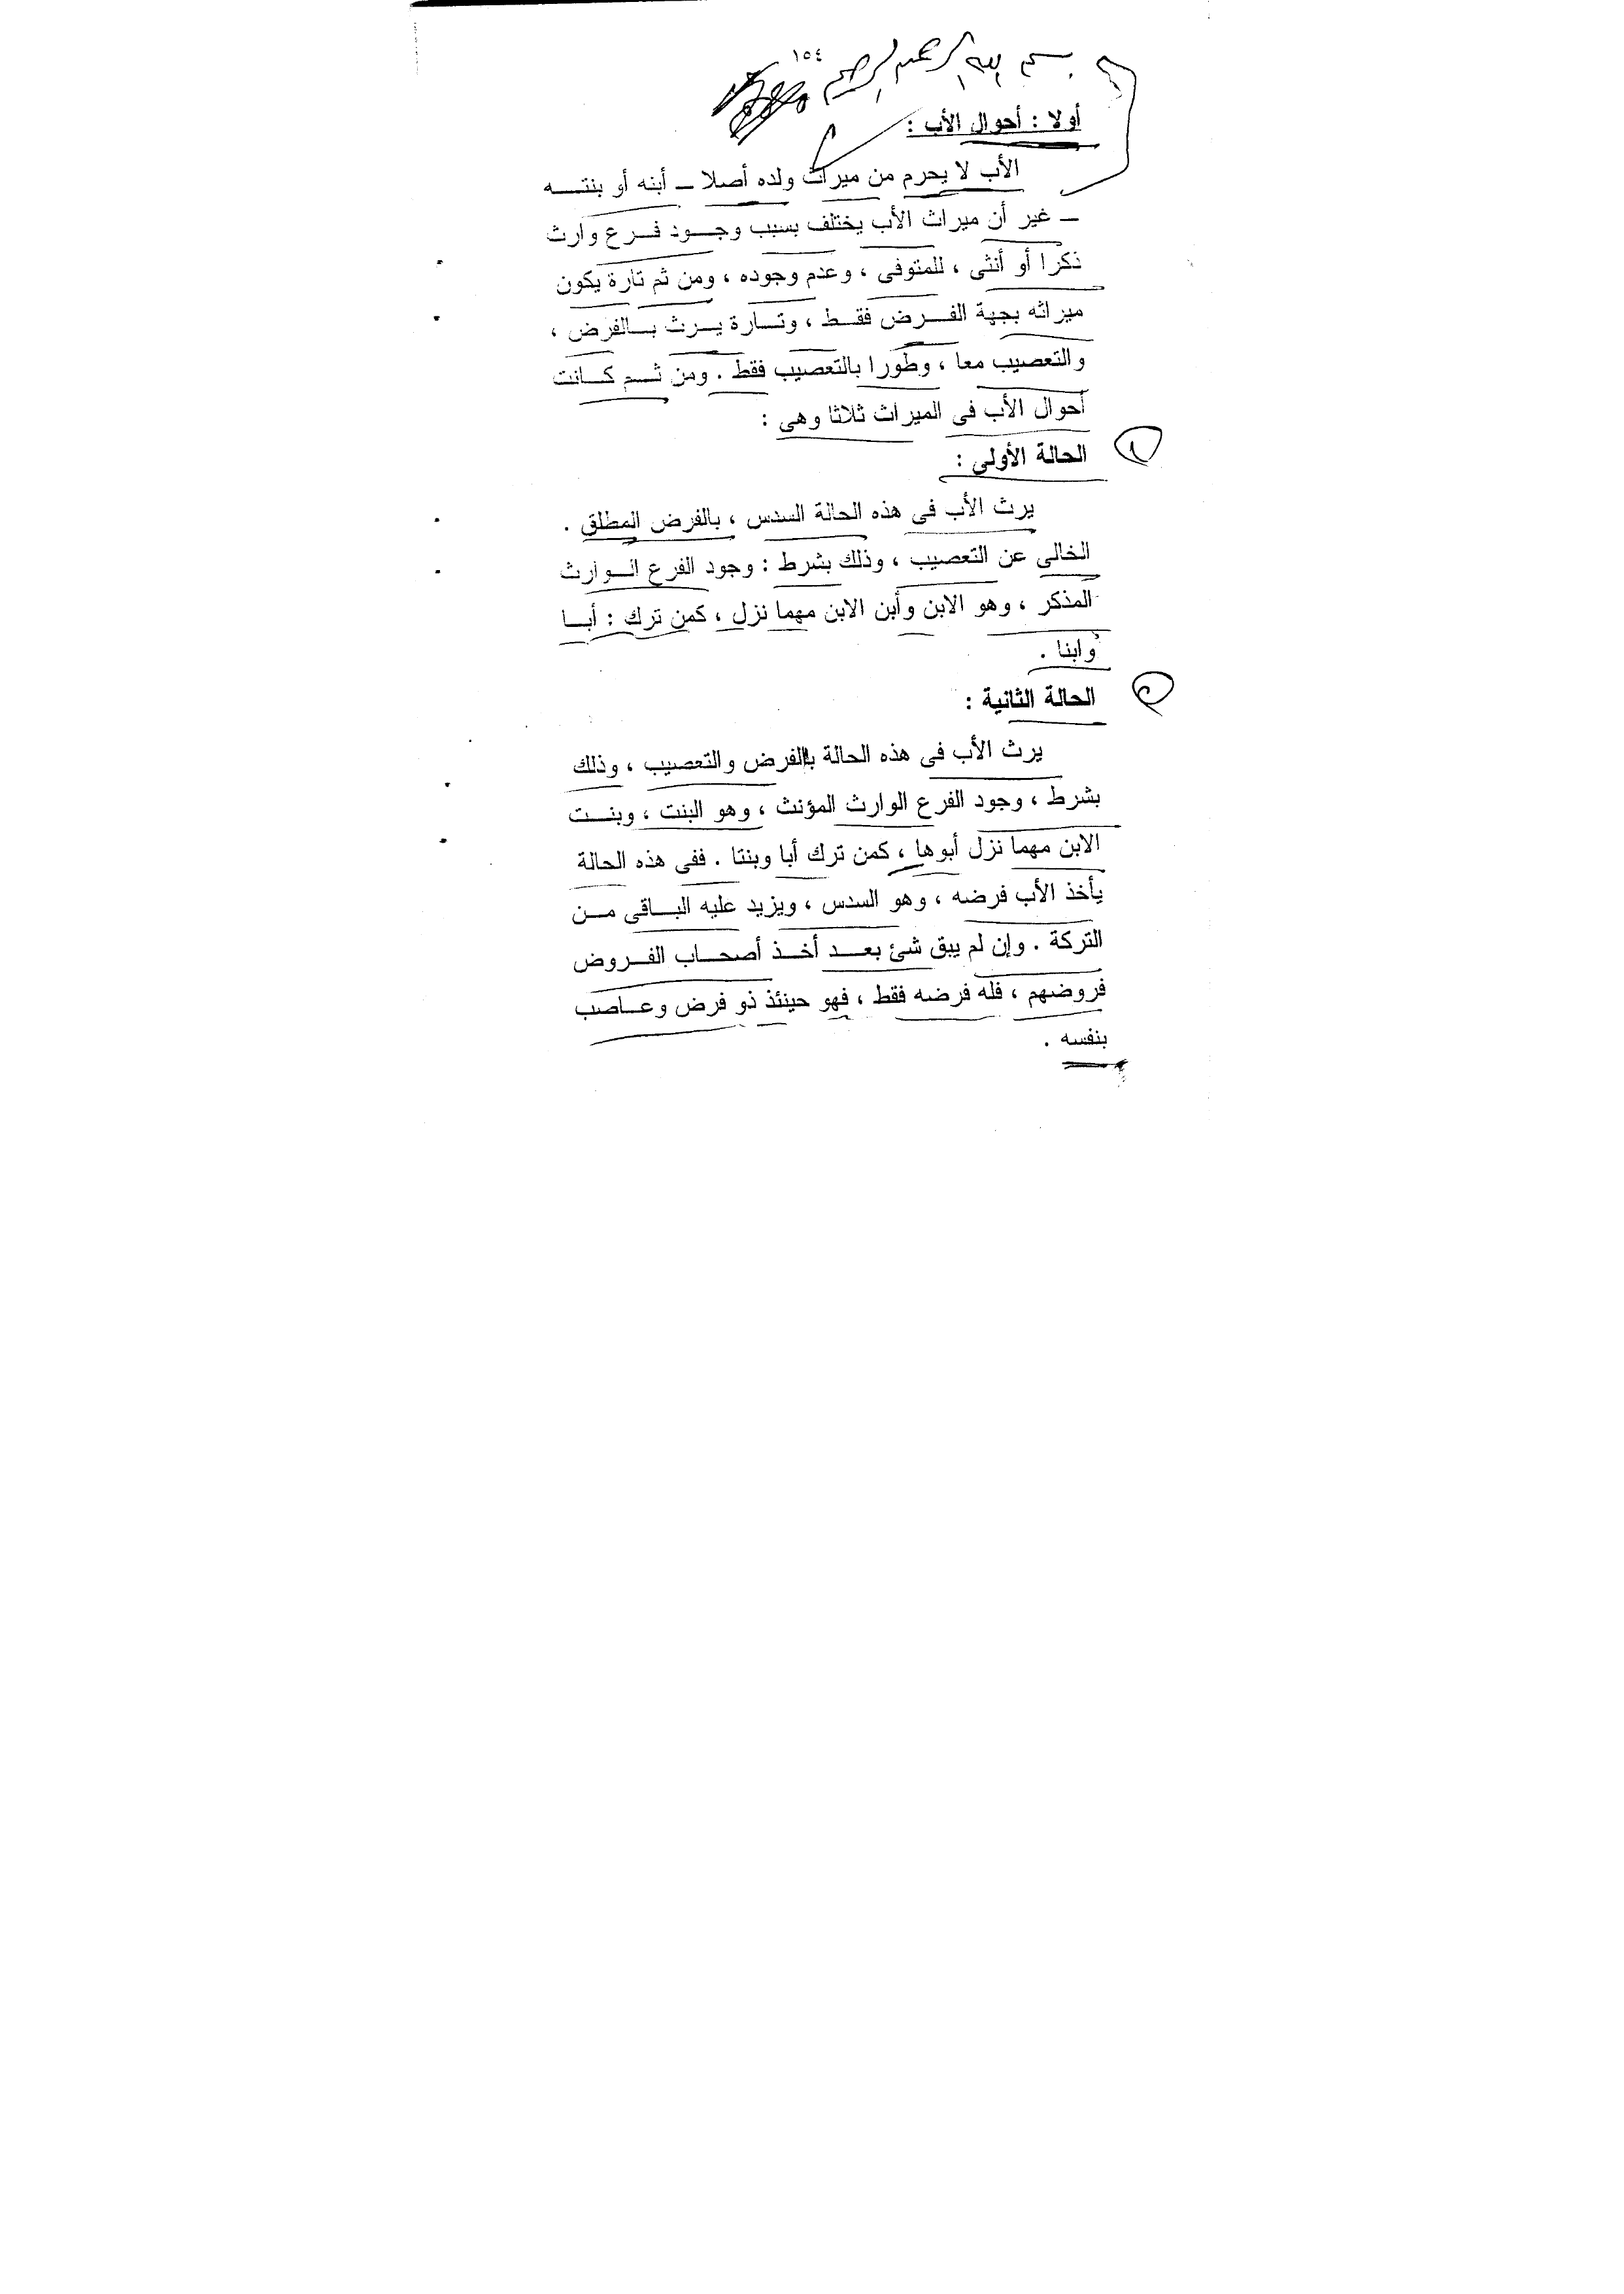 ١٥٤
بسم الله الرحمن الرحيم
أولا : أحوال الأب :
الأب لا يحرم من ميراث ولده أصلا ــ أبنه أو بنتــــه
ــ غير أن ميراث الأب يختلف بسبب وجـــود فـــرع وارث
ذكرا أو أنثى ، للمتوفى ، وعدم وجوده ، ومن ثم تارة يكون
ميراثه بجهة الفـــرض فقـــط ، وتـــارة يـــرث بـــالفرض ،
والتعصيب معا ، وطورا بالتعصيب فقط . ومن ثـــم كـــانت
أحوال الأب فى الميراث ثلاثا وهى :
١
الحالة الأولى :
يرث الأب فى هذه الحالة السدس ، بالفرض المطلق .
الخالى عن التعصيب ، وذلك بشرط : وجود الفرع الـــوارث
المذكر ، وهو الابن وأبن الابن مهما نزل ، كمن ترك : أبـــا
وابنا .
٢
الحالة الثانية :
يرث الأب فى هذه الحالة بالفرض والتعصيب ، وذلك
بشرط ، وجود الفرع الوارث المؤنث ، وهو البنت ، وبنـــت
الابن مهما نزل أبوها ، كمن ترك أبا وبنتا . ففى هذه الحالة
يأخذ الأب فرضه ، وهو السدس ، ويزيد عليه البـــاقى مـــن
التركة . وإن لم يبق شئ بعـــد أخـــذ أصحـــاب الفـــروض
فروضهم ، فله فرضه فقط ، فهو حينئذ ذو فرض وعـــاصب
بنفسه .